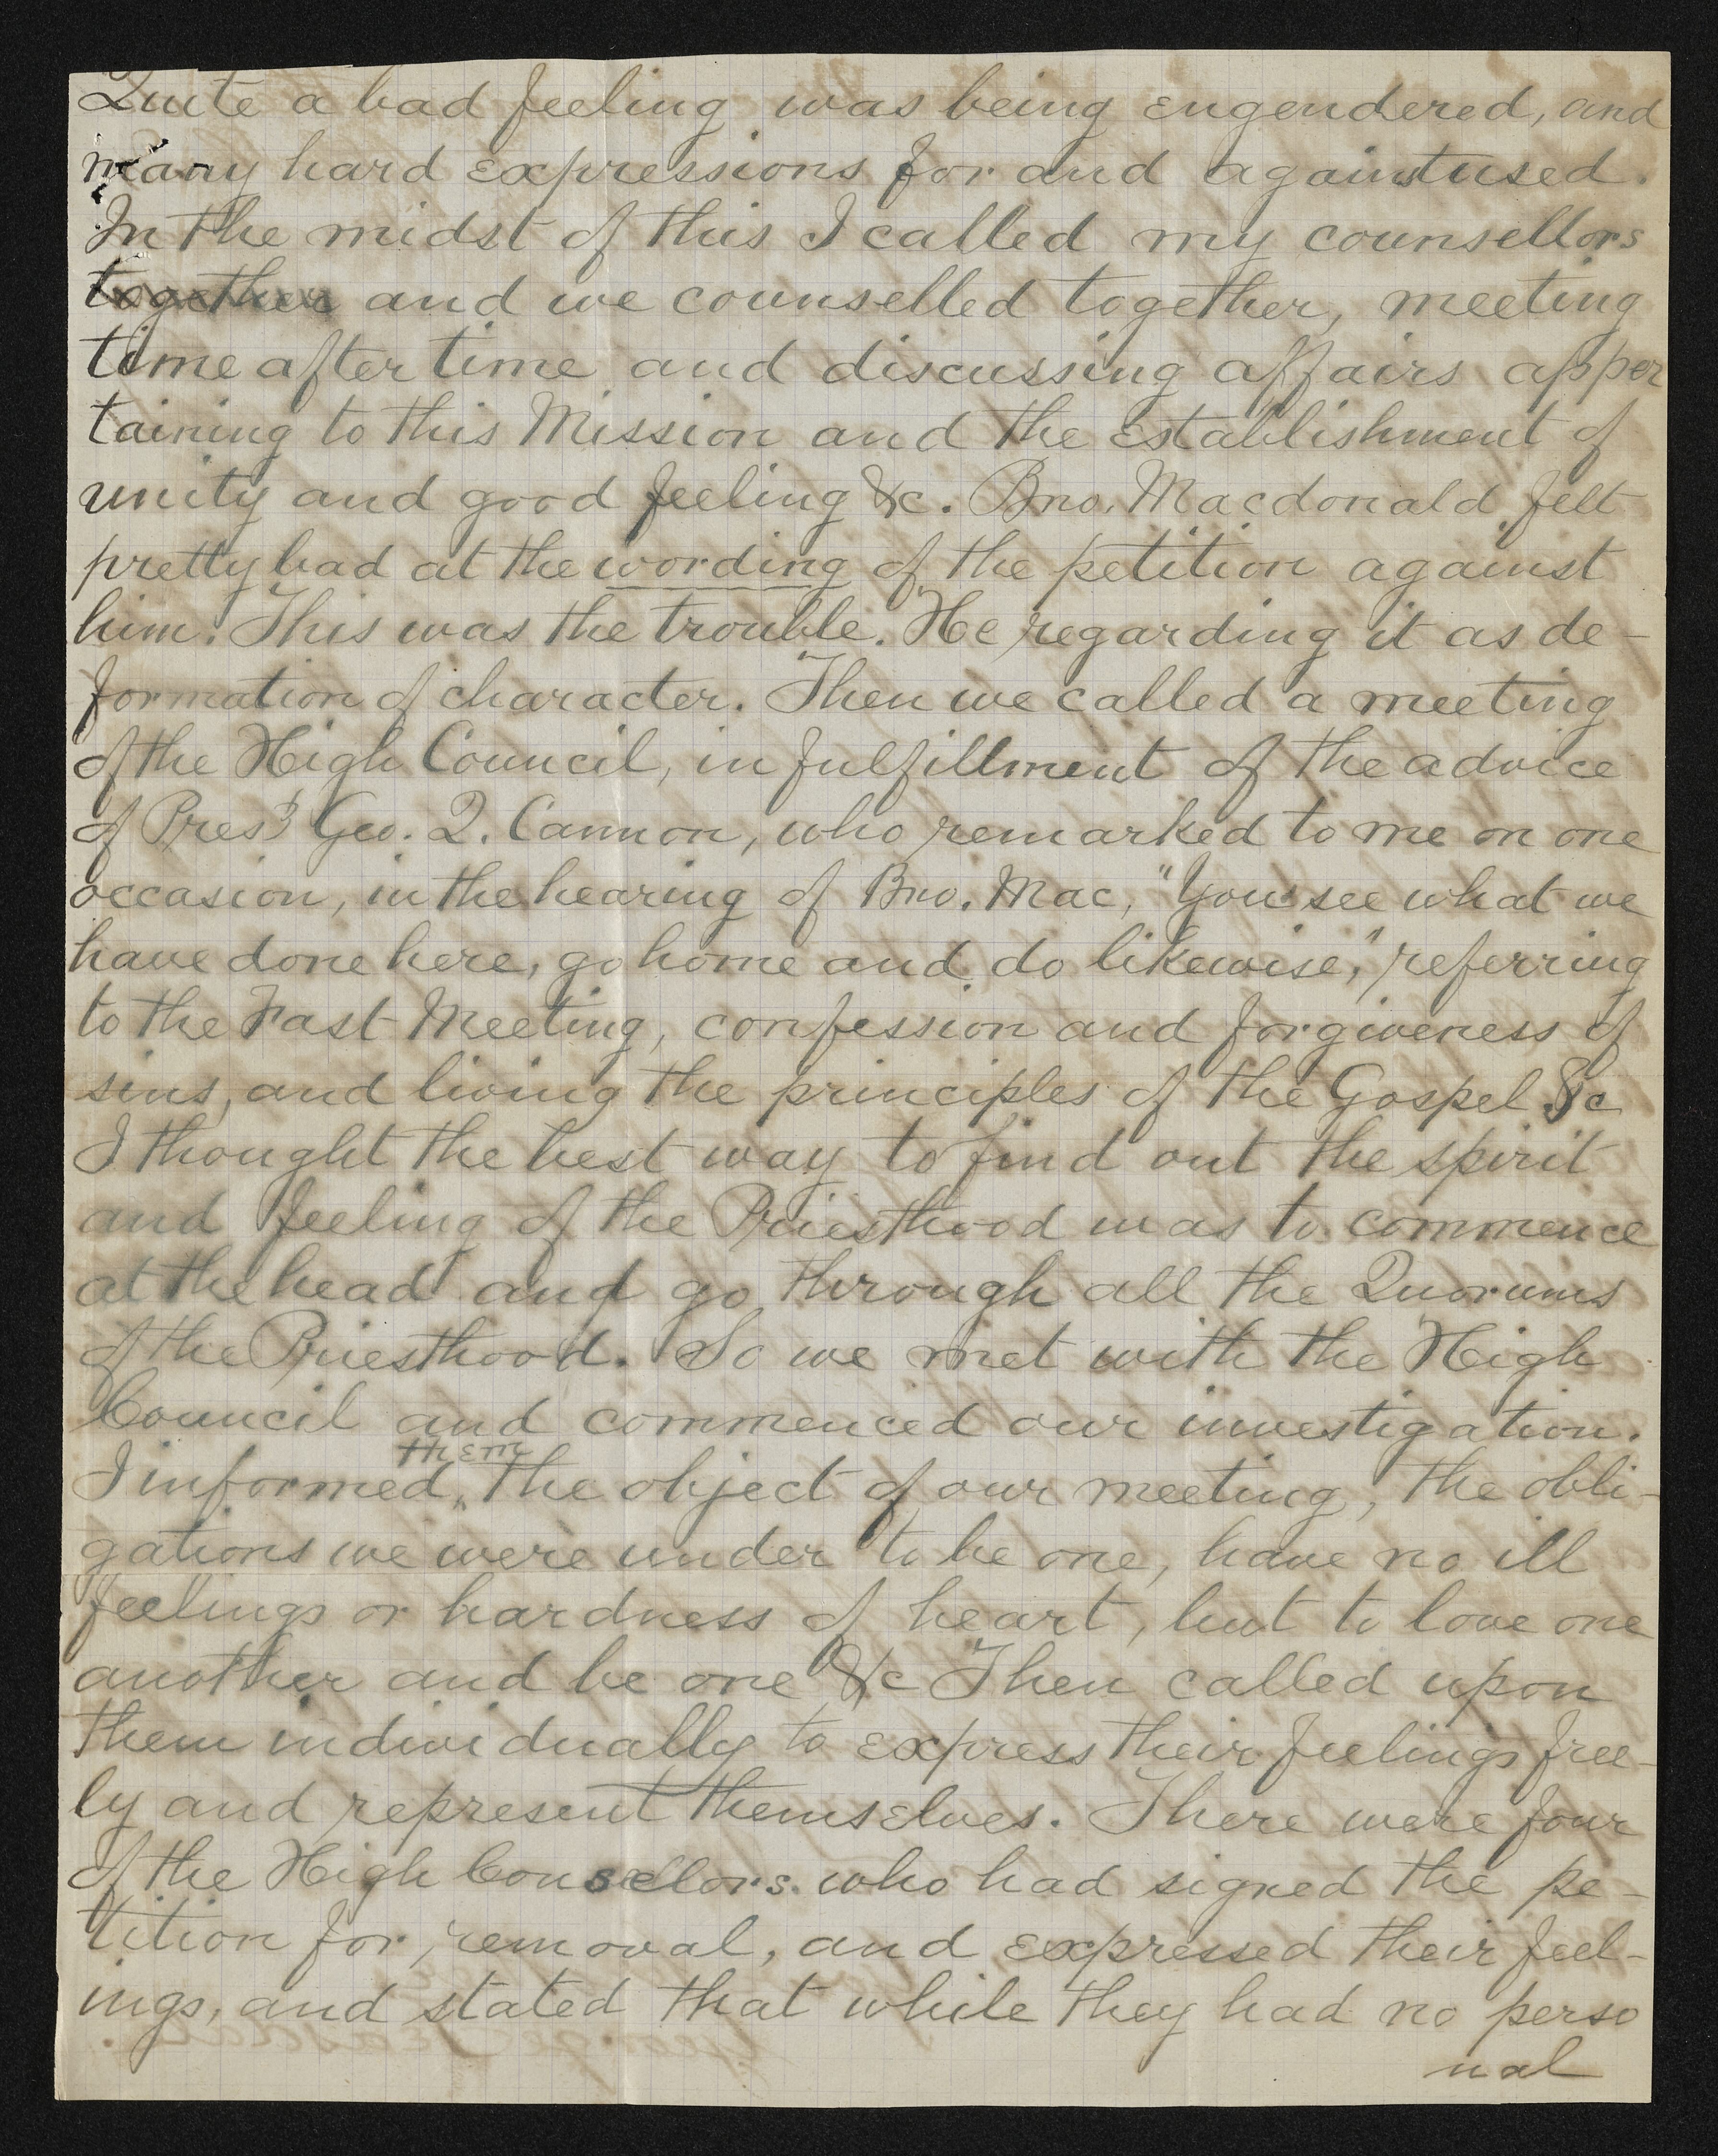 Quite a bad feeling was being engendered, and
many hard expressions for and against used.
In the midst of this I called my counsellors
together and we counselled together, meeting
time after time and discussing affairs apper
taining to this Mission and the establishment of
unity and good feeling &c. Bro. Macdonald felt
pretty bad at the wording of the petition against
him. This was the trouble. He regarding it as de-
formation of character. Then we called a meeting
of the High Council, in fulfillment of the advice
of Prest Geo. Q. Cannon, who remarked to me on one
occasion, in the hearing of Bro. Mac, "You see what we
have done here, go home and do likewise," referring
to the Fast Meeting, confession and forgiveness of
sins, and living the principles of the Gospel &c
I thought the best way to find out the spirit
and feeling of the Priesthood was to commence
at the head and go through all the Quorums
of the Priesthood. So we met with the High
Council and commenced our investigation.
them
I informed the object of our meeting, the obli-
gations we were under to be one, have no ill
feelings or hardness of heart, but to love one
another and be one &c Then called upon
them individually to express their feelings free-
ly and represent themselves. There were four
of the High Counsellors who had signed the pe-
tition for removal, and expressed their feel-
ings, and stated that while they had no perso
nal